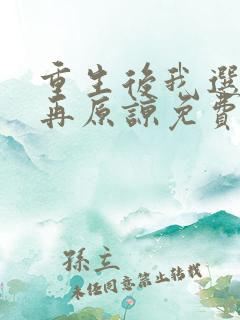 重生後我選
再原諒免費
孫立
未經同意禁止轉載